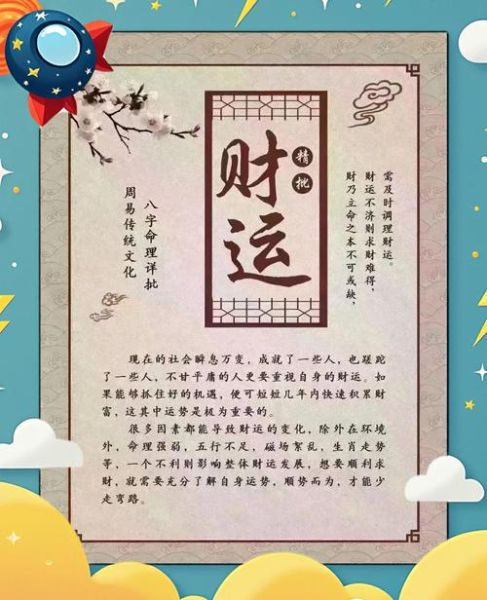 财运
精批
需及时调理财运。
财运不济则求财难得，
财乃立命之本不可或缺，
八字命理详批
周易传统文化
现在的社会瞬息万变，成就了一些人，也蹉跎
了一些人，不甘平庸的人更要重视自身的财运。如
果能够抓住好的机遇，便可短短几年内快速积累财
富，这其中运势是极为重要的。
很多因素都能导致财运的变化，除外在环境
外，命理强弱，五行不足，磁场紊乱，生肖走势
等，一个不利则影响整体财运发展，想要顺利求
财，就需要充分了解自身运势，顺势而为，才能少
走弯路。